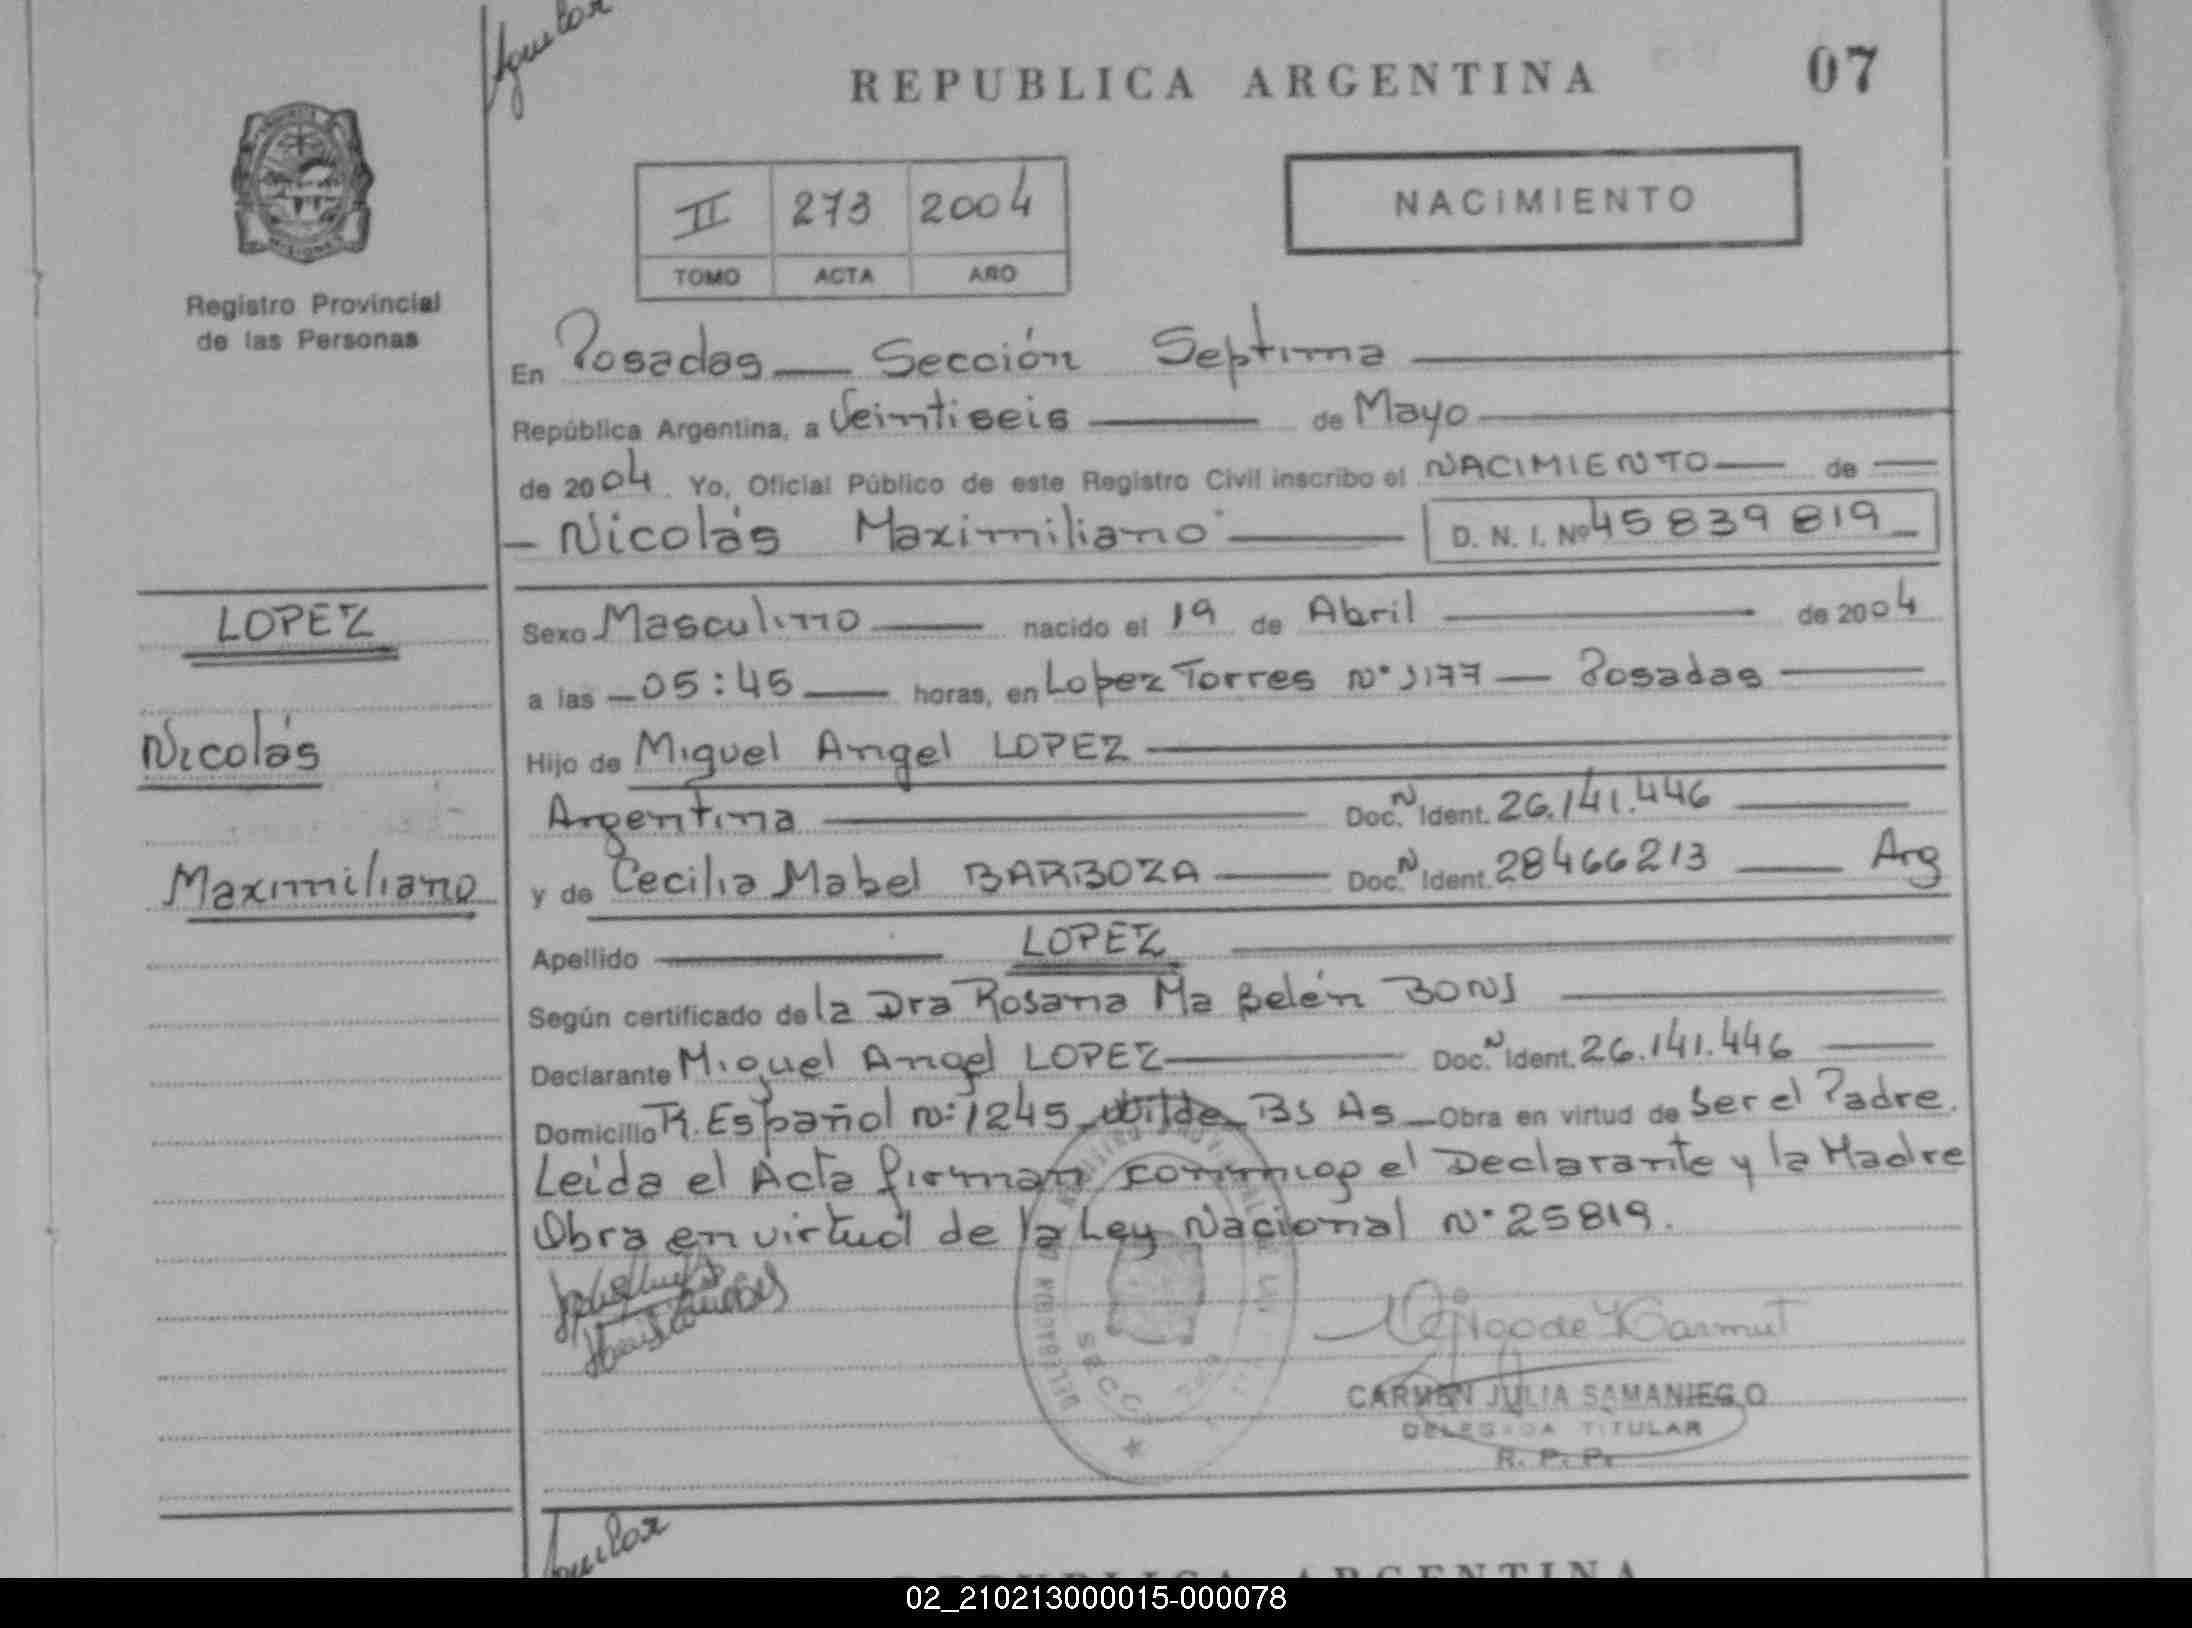 Aguilar
REPUBLICA ARGENTINA
07
II 273 2004
TOMO ACTA AÑO
NACIMIENTO
Registro Provincial
de las Personas
En Posadas — Sección Septima
República Argentina, a Veintiseis — de Mayo
de 2004 Yo, Oficial Público de este Registro Civil inscribo el NACIMIENTO — de —
— Nicolás Maximiliano — D. N. I. Nº 45 839 819 —
LOPEZ
Nicolás
Maximiliano
Sexo Masculino — nacido el 19 de Abril — de 2004
a las — 05:45 — horas, en Lopez Torres Nº 1177 — Posadas —
Hijo de Miguel Angel LOPEZ
Argentina — Doc. N Ident. 26.141.446 —
y de Cecilia Mabel BARBOZA — Doc. N Ident. 28466213 — Arg
Apellido — LOPEZ —
Según certificado de la Dra Rosana Ma Belén BONJ —
Declarante Miguel Angel LOPEZ — Doc. N Ident. 26.141.446 —
Domicilio R. Español Nº 1245 Wilde Bs As — Obra en virtud de Ser el Padre.
Leida el Acta firman conmigo el Declarante y la Madre
Obra en virtud de la Ley Nacional Nº 25819.
SECC
CARMEN JULIA SAMANIEGO
DELEGADA TITULAR
R. P. P.
Aguilar
REPUBLICA ARGENTINA
02_210213000015-000078